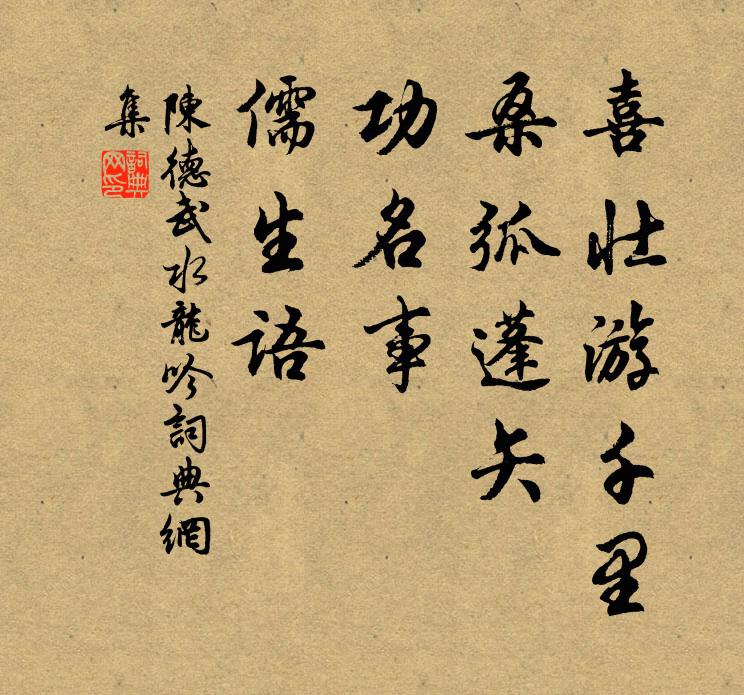 喜壮游千里
桑弧蓬矢
功名事
儒生語
陳德武水龍吟詞典網
集
詞典網印